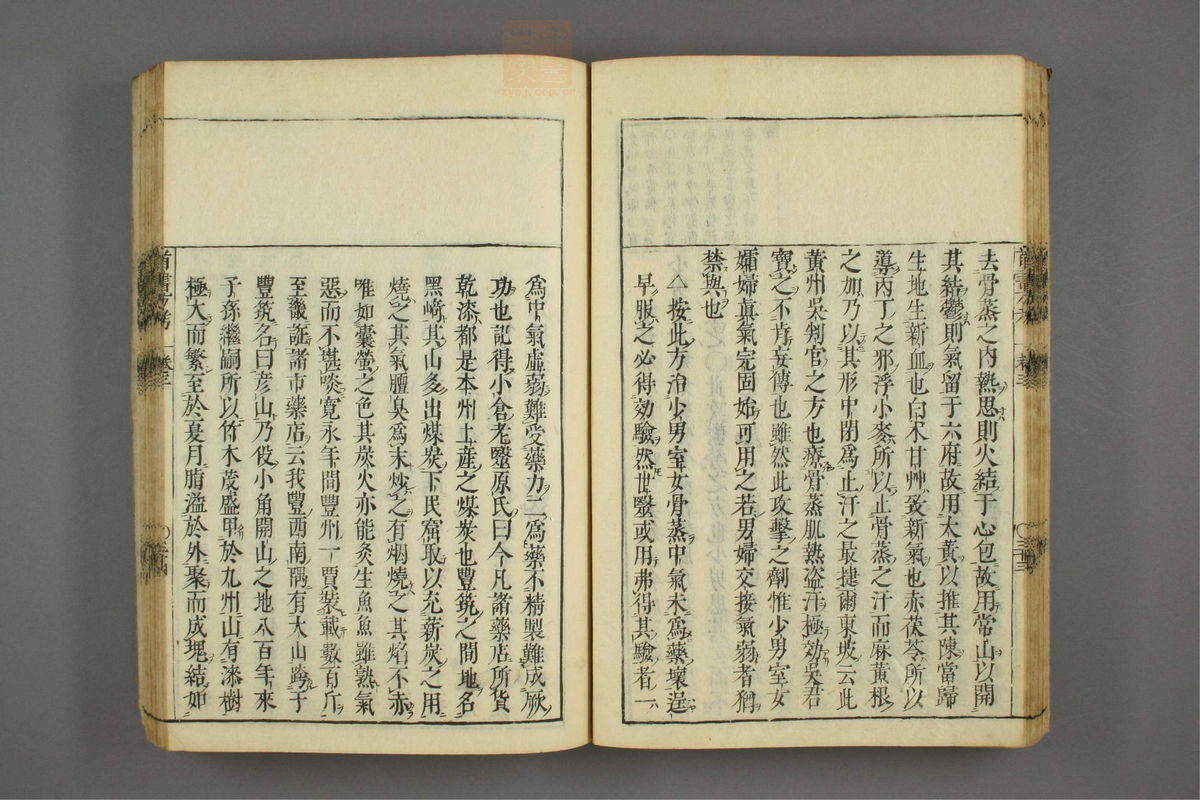 去骨蒸之內熱思則火結于心包故用常山以開
其結鬱則氣留于六府故用大黃以推其陳當歸
生地生新血也白朮甘艸致新氣也赤茯苓所以
導丙丁之邪浮小麥所以止骨蒸之汗而麻黃根
之加乃以其形中閉爲止汗之最捷爾東坡云此
黃州吳判官之方也療骨蒸肌熱盜汗極効吳君
寶之不肯妄傳也雖然此攻擊之劑惟少男室女
孀婦眞氣完固始可用之若男婦交接氣弱者猶
禁與也
△按此方治少男室女骨蒸中氣未爲藥壞逞
早服之必得効驗然世醫或用弗得其驗者一
爲中氣虛弱難受藥力二爲藥不精製難成厥
功也記得小倉老醫原氏曰今凡諸藥店所貨
乾漆都是本州土產之煤炭也豐筑之間地名
黑崎其山多出煤炭下民窟取以充薪炭之用
燒之其氣膻臭爲末炒之有烟燒之其焰不赤
唯如囊螢之色其炭火亦能灸生魚魚雖熟氣
惡而不堪啖寬永年間豐州一賈裝載數百斤
至畿誑諸市藥店云我豐西南隅有大山跨于
豐筑名曰彦山乃役小角開山之地八百年來
子孫繼嗣所以竹木茂盛甲於九州山有漆樹
極大而繁至於夏月脂溢於外聚而成塊結如